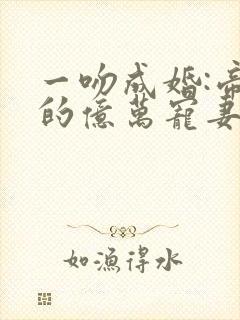 一吻成婚:帝
的億萬寵妻
如漁得水